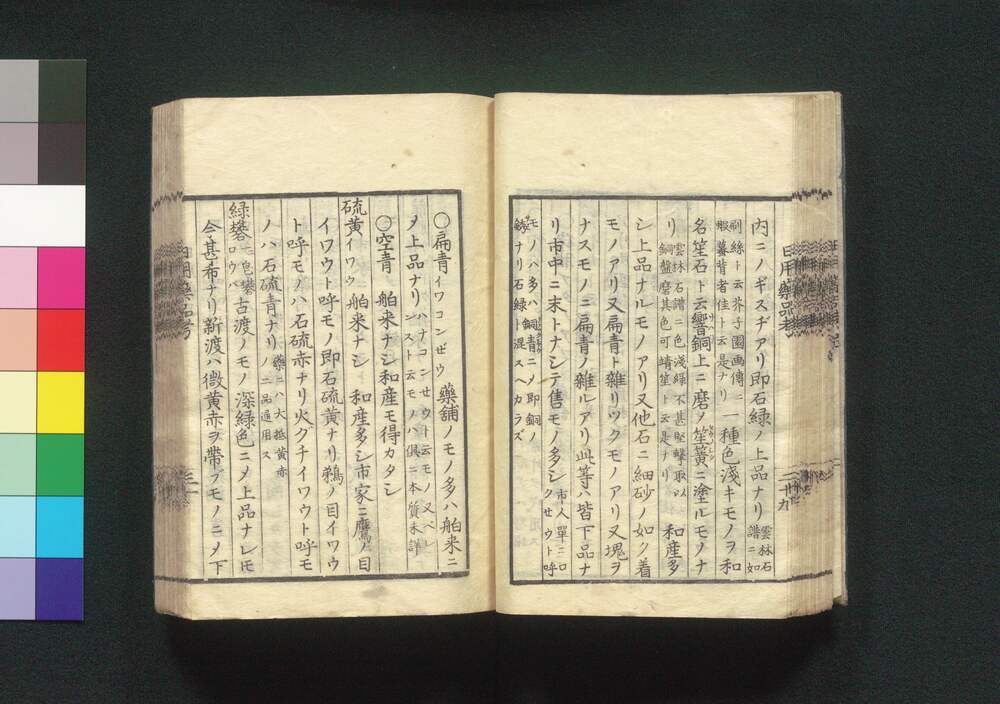 内ニノギスヂアリ即石緑ノ上品ナリ 雲林石譜ニ如
刷絲ト云芥子園画傳ニ蝦蟇背者佳ト云是ナリ 一種色淺キモノヲ和
名笙石ト云響銅上ニ磨ノ笙簧ニ塗ルモノナ
リ 雲林石譜ニ色淺緑不甚堅撃取以銅盤磨其色可靖笙ト云是ナリ 和産多
シ上品ナルモノアリ又他石ニ細砂ノ如ク着
モノアリ又扁青ト雜リツクモノアリ又塊ヲ
ナスモノニ扁青ノ雜ルアリ此等ハ皆下品ナ
リ市中ニ末トナシテ售モノ多シ 市人單ニロクセウト呼
モノハ多ハ銅青ニノ即銅ノ
銹ナリ石緑ト混スヘカラズ
日用藥品考
二十九
○扁青 イワコンゼウ 藥舗ノモノ多ハ舶来ニ
ヲ上品ナリ ハナコンセウト云モノ又ベレンストト云モノハ俱ニ本質未詳
○空青 舶来ナシ和産モ得カタシ
硫黄 イワウ 舶来ナシ 和産多シ市家ニ鷹ノ目
イワウト呼モノ即石硫黄ナリ鵜ノ目イワウ
ト呼モノハ石硫赤ナリ火グチイワウト呼モ
ノハ石硫青ナリ 藥ニハ大抵黄赤ノ二品通用ス
緑礬 ロウハ 古渡ノモノ深緑色ニメ上品ナレ𪜈
今甚希ナリ新渡ハ微黄赤ヲ帶ブモノニメ下
日用藥品考
三十